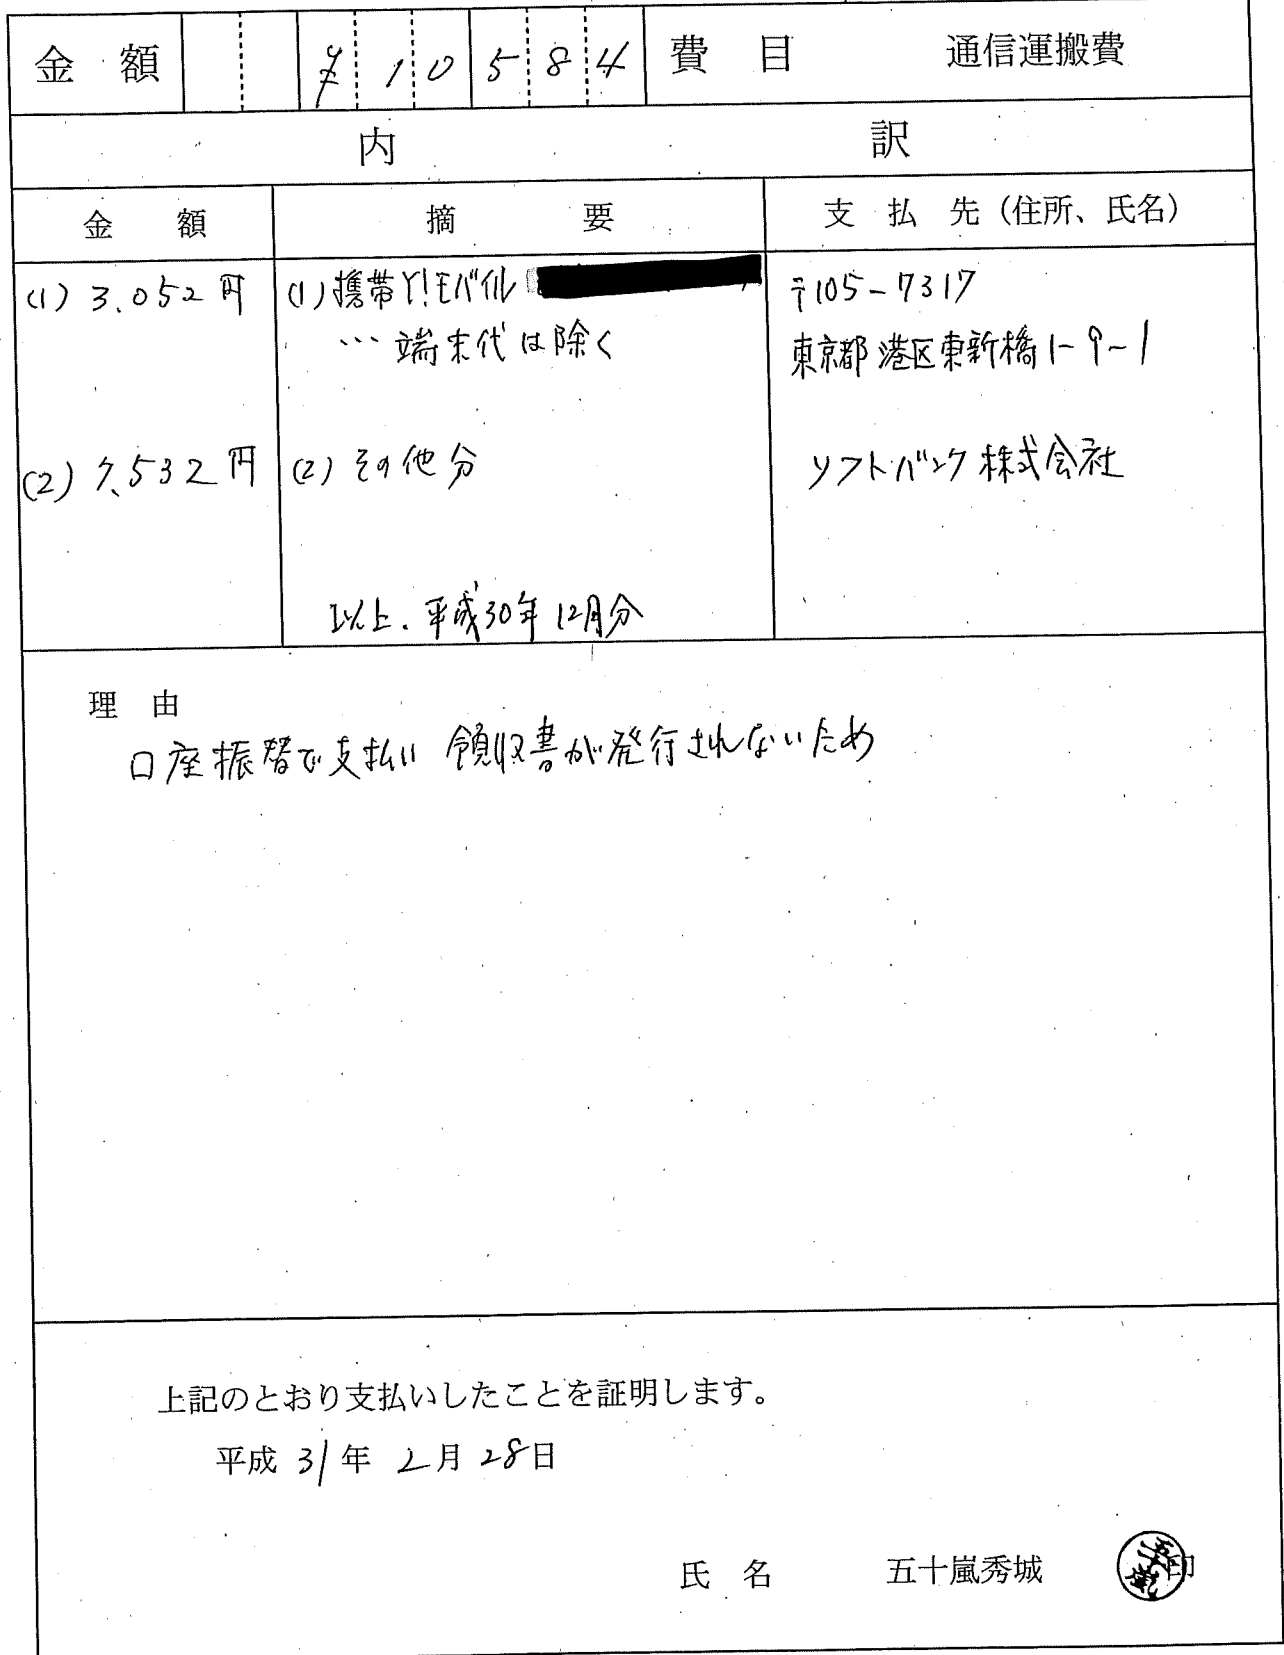 金 額 ¥10584 費 目 通信運搬費
内 訳
金 額 摘 要 支 払 先（住所、氏名）
(1) 3,052円 (1)携帯Y!モバイル 〒105-7317
…端末代は除く 東京都港区東新橋1-9-1
(2) 7,532円 (2)その他分 ソフトバンク株式会社
以上、平成30年12月分
理 由
口座振替で支払い 領収書が発行されないため
上記のとおり支払いしたことを証明します。
平成31年2月28日
氏 名 五十嵐秀城 印
五十嵐